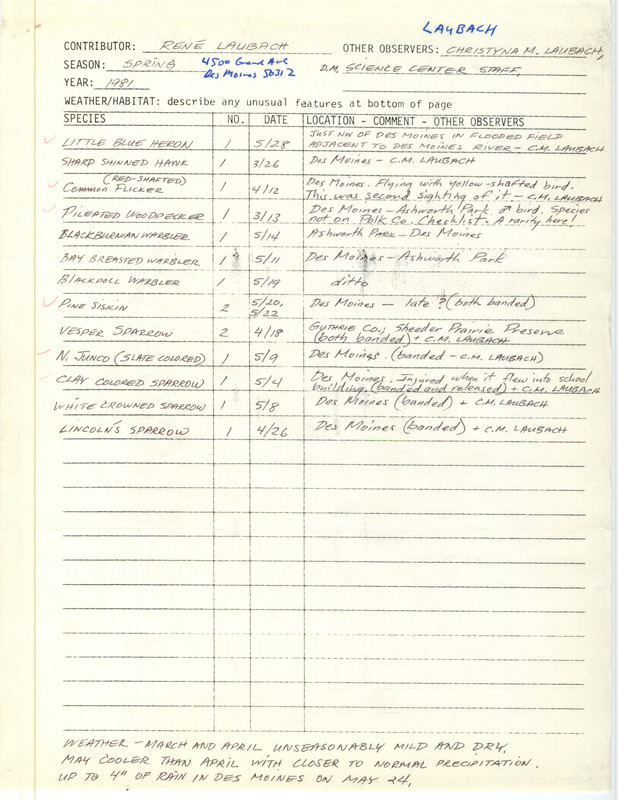 LAUBACH
CONTRIBUTOR: RENÉ LAUBACH OTHER OBSERVERS: CHRISTYNA M. LAUBACH,
SEASON: SPRING 4500 Grand Ave D.M. SCIENCE CENTER STAFF,
Des Moines 50312
YEAR: 1981
WEATHER/HABITAT: describe any unusual features at bottom of page
SPECIES NO. DATE LOCATION - COMMENT - OTHER OBSERVERS
JUST NW OF DES MOINES IN FLOODED FIELD
LITTLE BLUE HERON 1 5/28 ADJACENT TO DES MOINES RIVER - C.M. LAUBACH
SHARP SHINNED HAWK 1 3/26 Des Moines - C.M. LAUBACH
(RED-SHAFTED) Des Moines. Flying with yellow-shafted bird.
Common FLICKER 1 4/12 This was second sighting of it - C.M. LAUBACH
PILEATED WOODPECKER 1 3/13 Des Moines - Ashworth Park ♂ bird. Species
not on Polk Co. Checklist. A rarity here!
BLACKBURNIAN WARBLER 1 5/14 ASHWORTH PARK - DES MOINES
BAY BREASTED WARBLER 1 5/11 Des Moines - Ashworth Park
BLACKPOLL WARBLER 1 5/19 ditto
PINE SISKIN 2 5/20, 5/22 Des Moines - late? (both banded)
VESPER SPARROW 2 4/18 GUTHRIE CO; Sheeder Prairie Preserve
(both banded) + C.M. LAUBACH
N. JUNCO (SLATE COLORED) 1 5/9 Des Moines. (banded - C.M. LAUBACH)
CLAY COLORED SPARROW 1 5/4 Des Moines. Injured when it flew into school
building (banded and released) + C.M. LAUBACH
WHITE CROWNED SPARROW 1 5/8 Des Moines (banded) + C.M. LAUBACH
LINCOLN'S SPARROW 1 4/26 Des Moines (banded) + C.M. LAUBACH
WEATHER - MARCH AND APRIL UNSEASONABLY MILD AND DRY,
MAY COOLER THAN APRIL WITH CLOSER TO NORMAL PRECIPITATION.
UP TO 4" OF RAIN IN DES MOINES ON MAY 24,